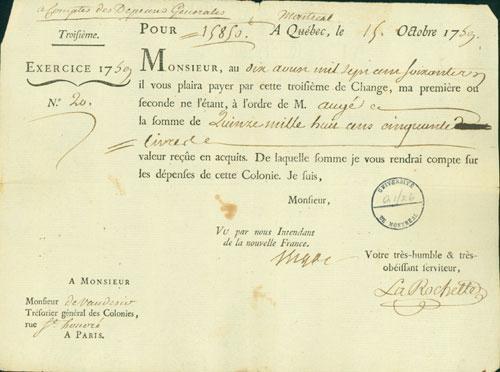 a Comptes des Depenses Generales
Montreal
Troisième. POUR 15850. A Québec, le 15 Octobre 1759
EXERCICE 1759 MONSIEUR, au dix avril mil sept cent soixante
il vous plaira payer par cette troisième de Change, ma première ou
N.º 20. seconde ne l'étant, à l'ordre de M. augé
la somme de Quinze mille huit cens cinquante
livres
valeur reçue en acquits. De laquelle somme je vous rendrai compte sur
les dépenses de cette Colonie. Je suis,
Monsieur,
UNIVERSITÉ
DE MONTRÉAL
VU par nous Intendant
de la nouvelle France.
Bigot
Votre très-humble & très-
obéissant serviteur,
La Rochette
A MONSIEUR
Monsieur
Trésorier général des Colonies,
rue St honoré
A PARIS.